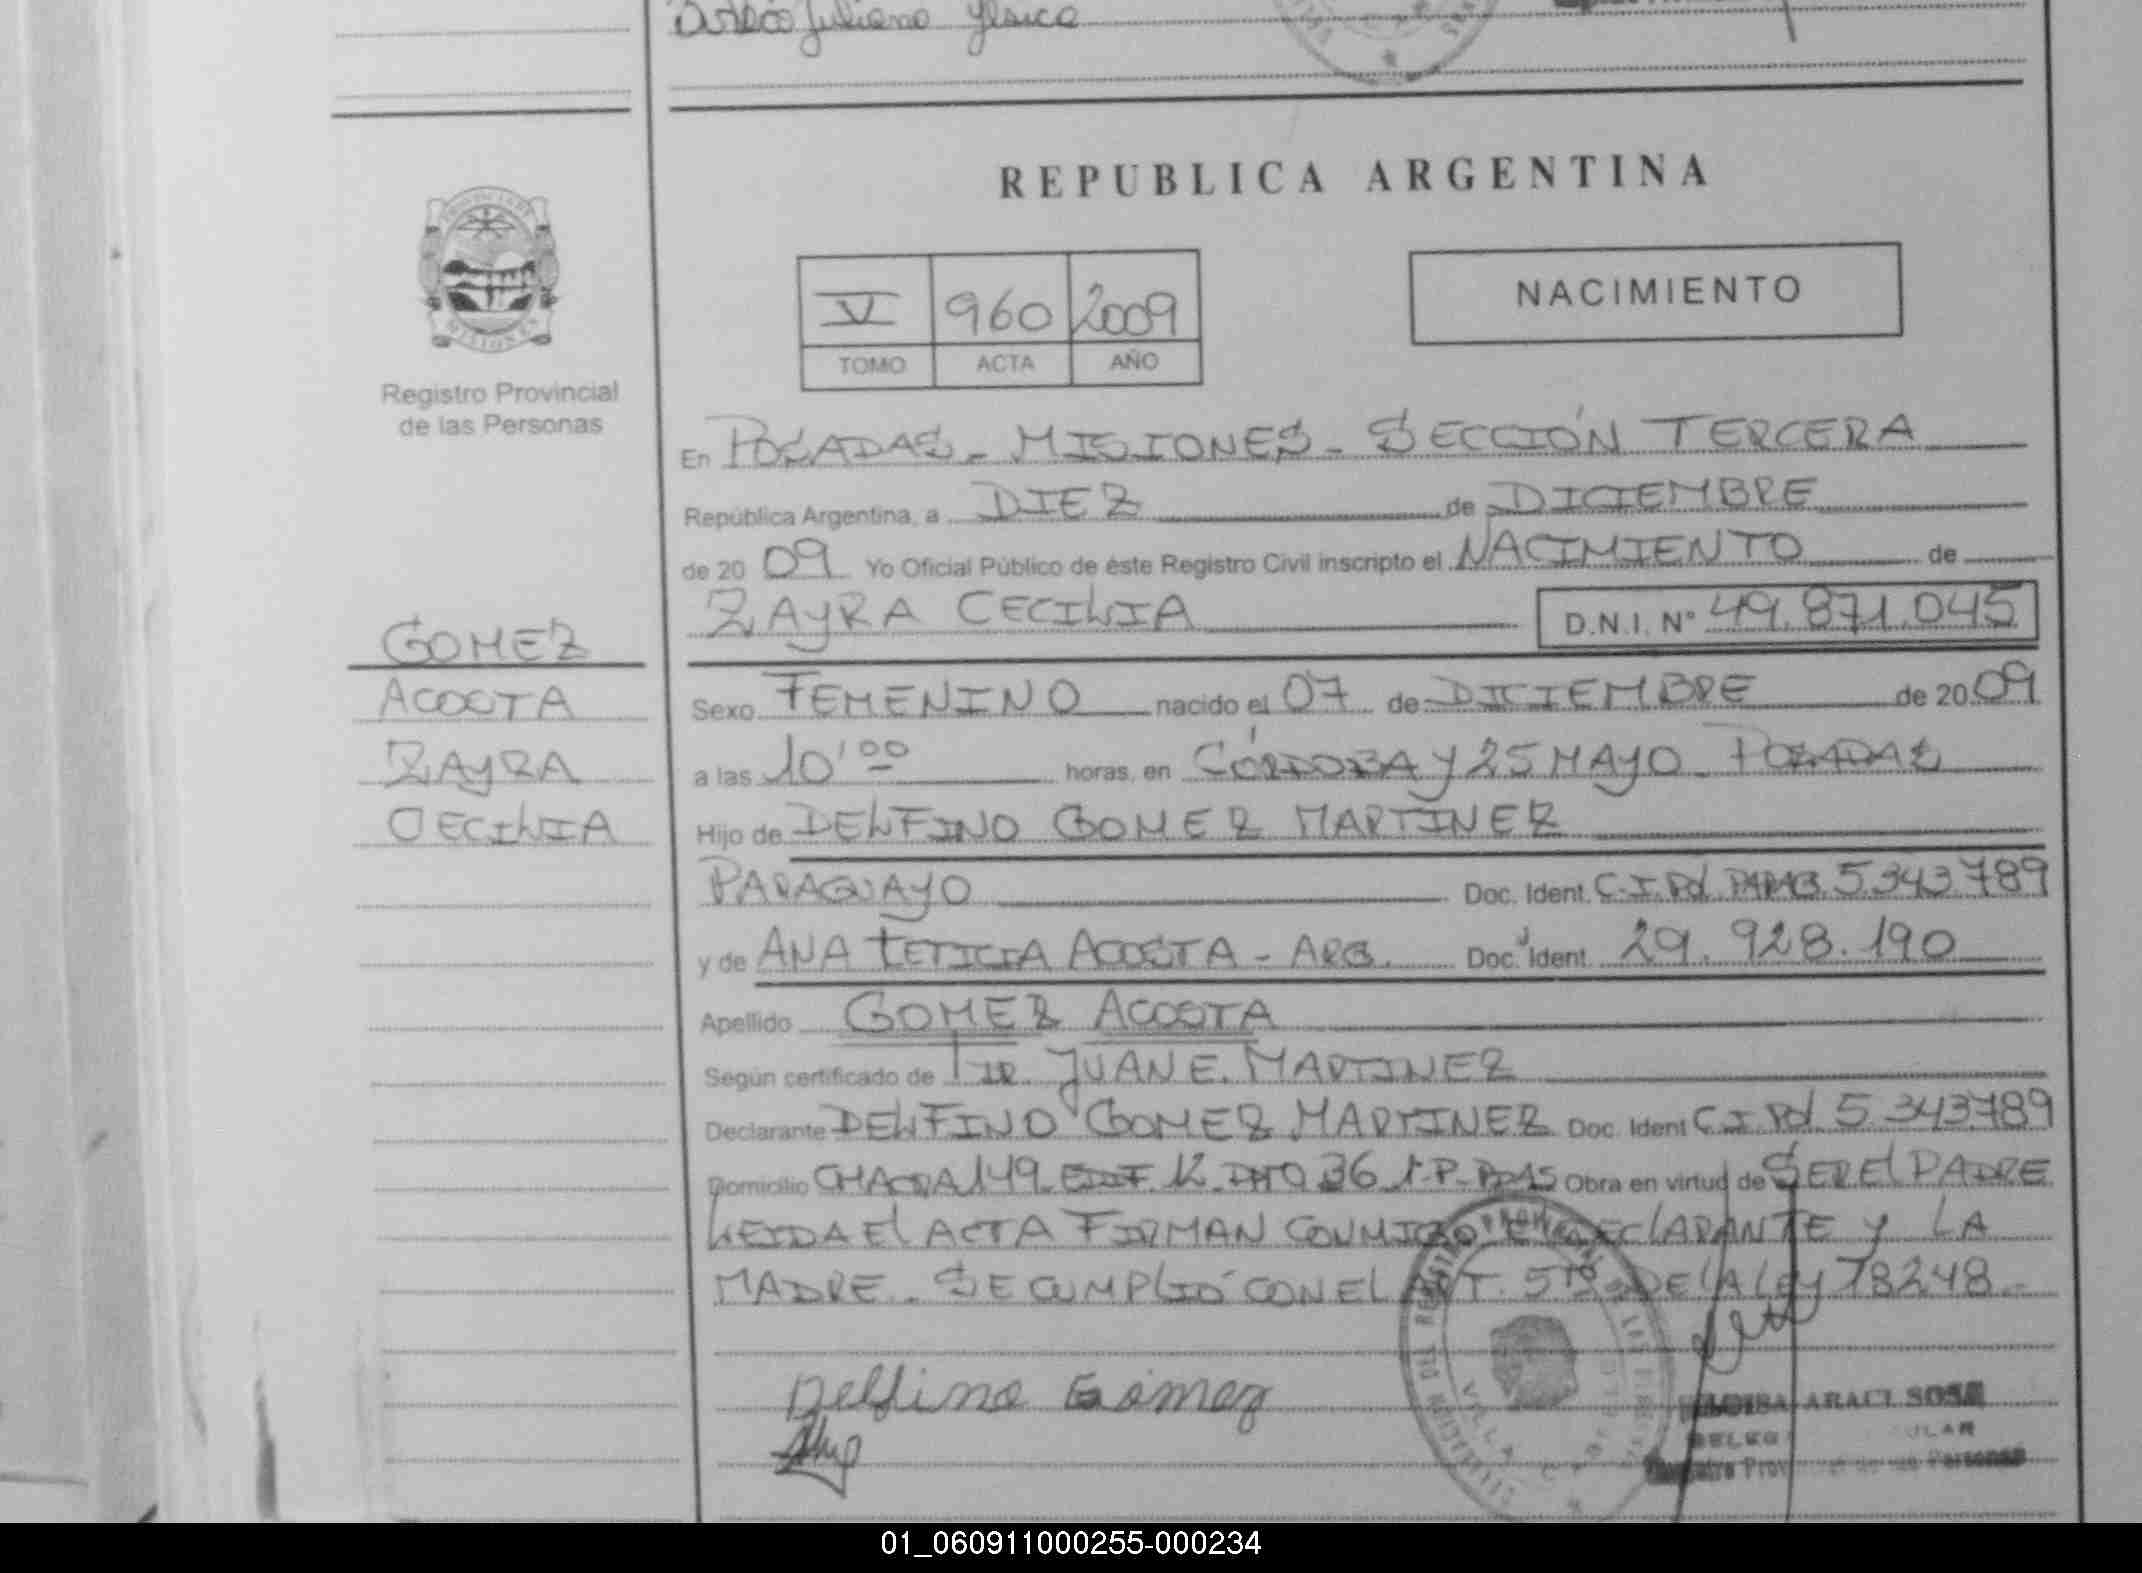 Juliana Yesica
REPUBLICA ARGENTINA
V 960 2009
TOMO ACTA AÑO
NACIMIENTO
MISIONES
Registro Provincial
de las Personas
En POSADAS - MISIONES - SECCIÓN TERCERA
República Argentina, a DIEZ de DICIEMBRE
de 2009 Yo Oficial Público de éste Registro Civil inscripto el NACIMIENTO de
ZAYRA CECILIA D.N.I. Nº 49.871.045
GOMEZ
ACOSTA
ZAYRA
CECILIA
Sexo FEMENINO nacido el 07 de DICIEMBRE de 2009
a las 10'00 horas, en CÓRDOBA Y 25 MAYO - POSADAS
Hijo de DELFINO GOMEZ MARTINEZ
PARAGUAYO Doc. Ident. C.I. Pol. PARAG. 5.343.789
y de ANA LETICIA ACOSTA - ARG. Doc. Ident. 29.928.190
Apellido GOMEZ ACOSTA
Según certificado de JUAN E. MARTINEZ
Declarante DELFINO GOMEZ MARTINEZ Doc. Ident C.I. Pol. 5.343.789
Domicilio CHACRA 149 EDIF. 12 DPTO 36 1º P- PDAS Obra en virtud de SER EL PADRE
LEIDA EL ACTA FIRMAN CONMIGO EL DECLARANTE Y LA
MADRE - SE CUMPLIÓ CON EL ART. 5TO DE LA LEY 18248.-
Delfino Gómez
ARACI SOSA
Registro Provincial de las Personas
01_060911000255-000234